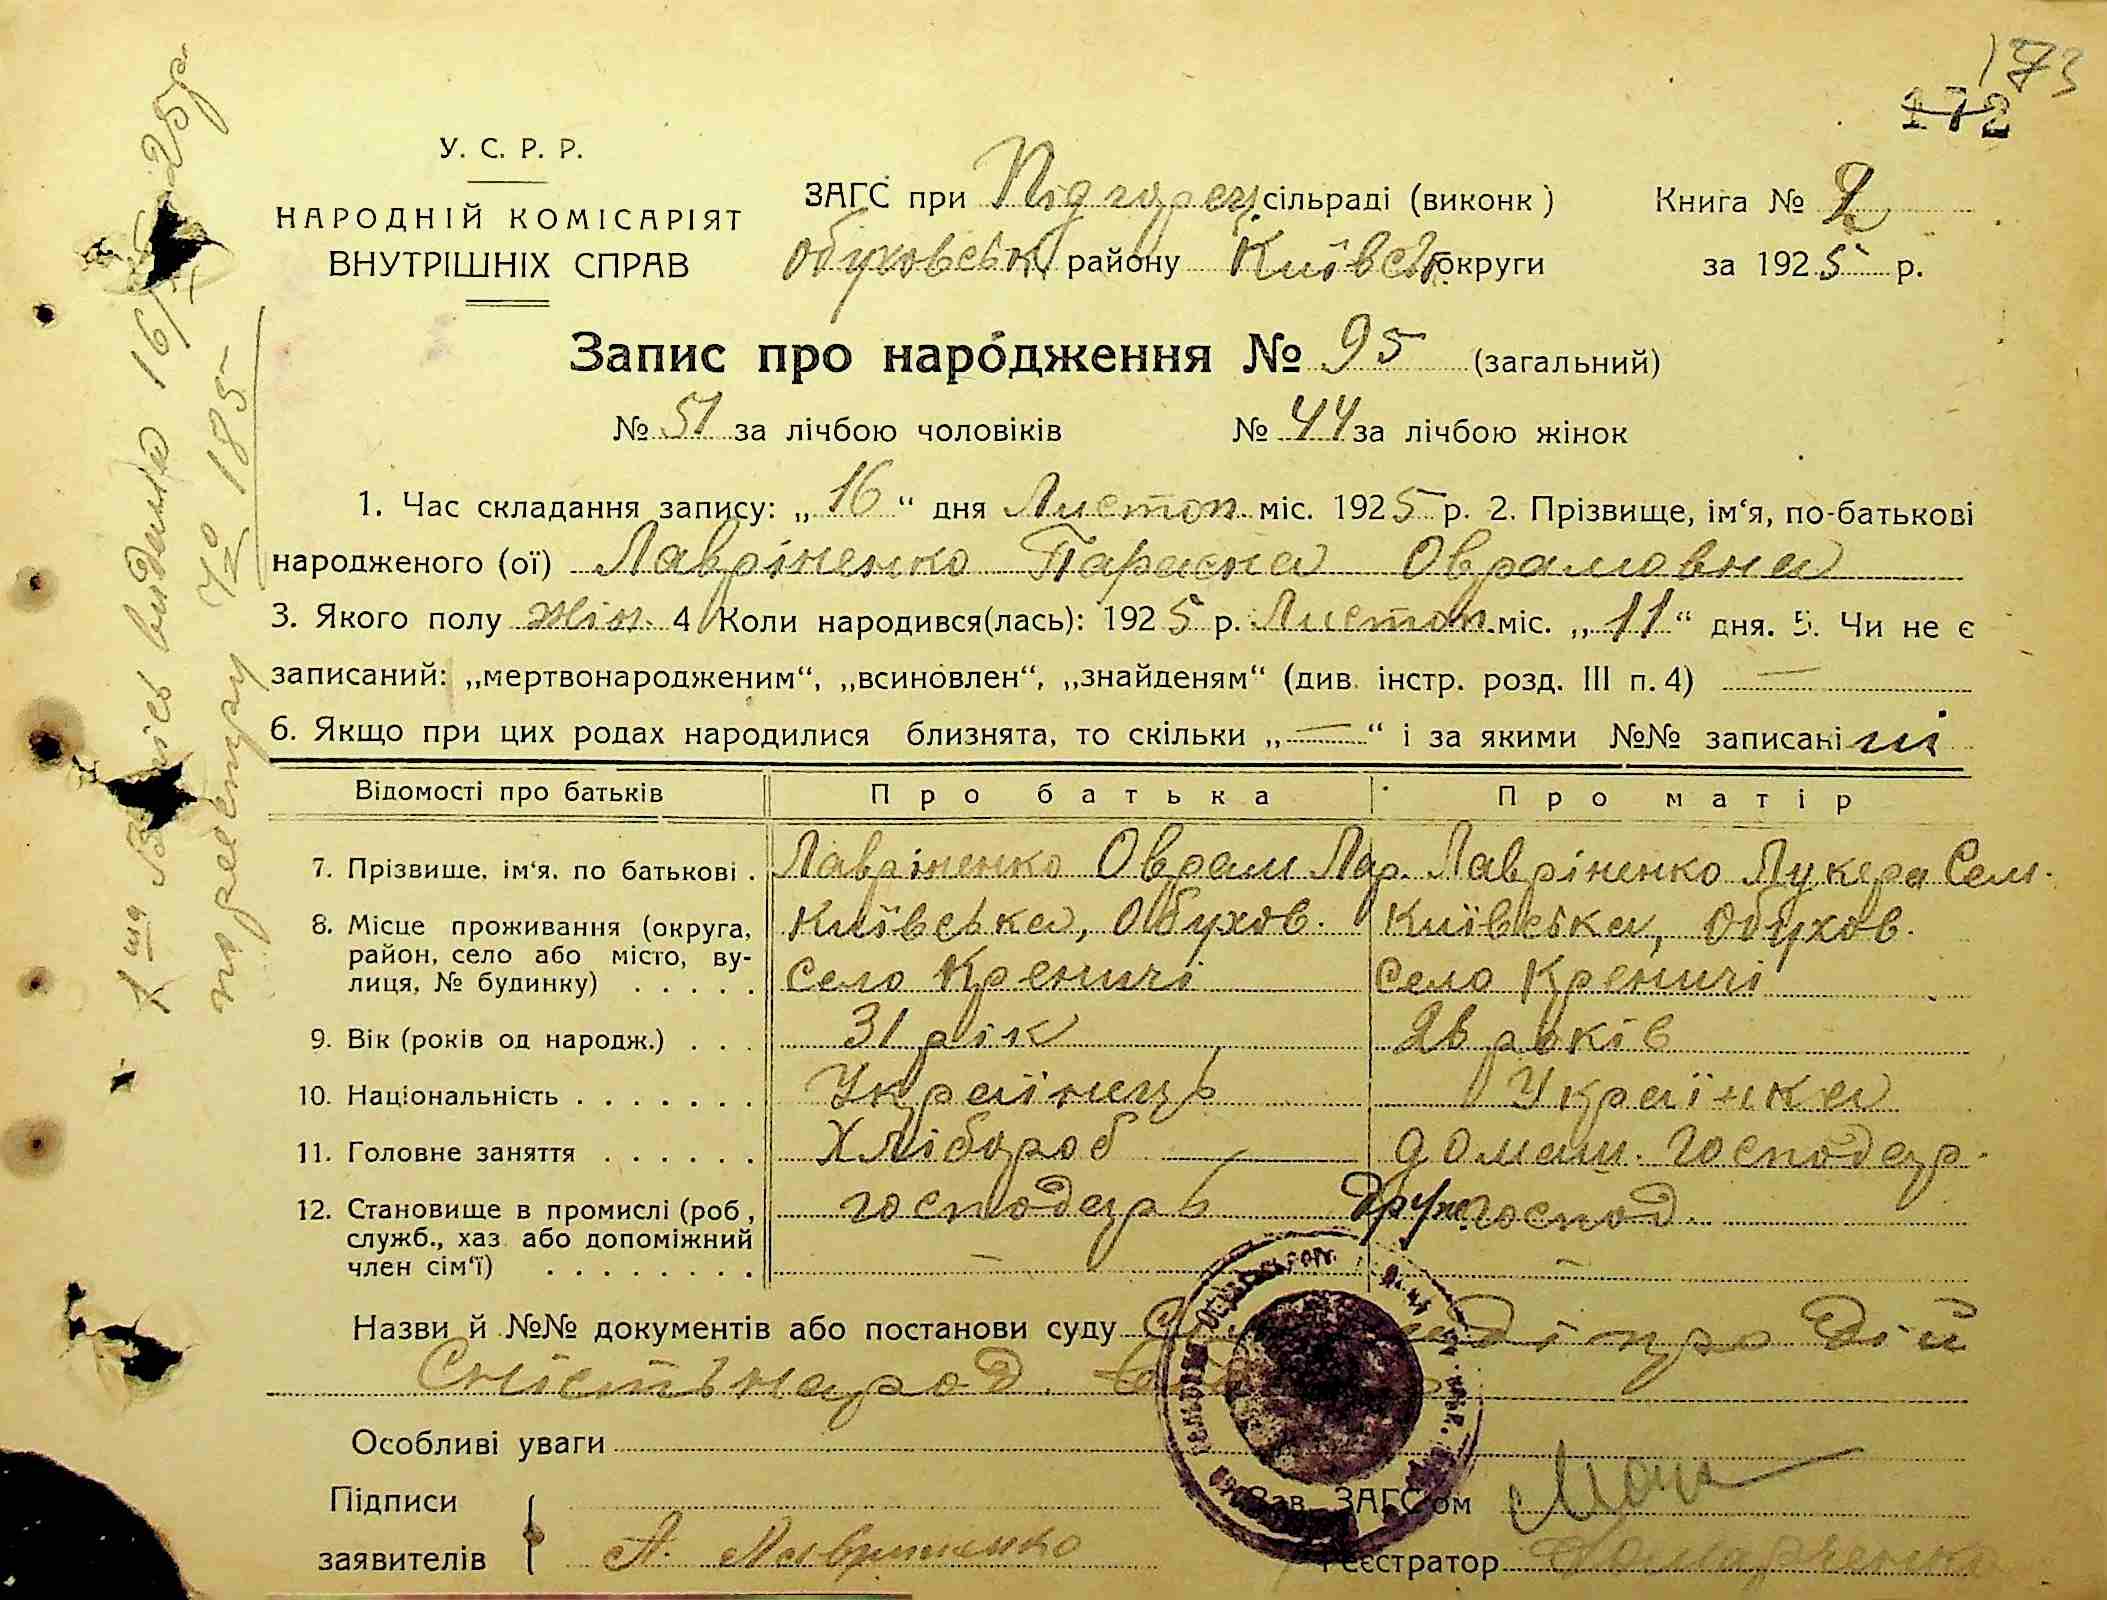 173
172
У. С. Р. Р.
НАРОДНІЙ КОМІСАРІЯТ
ВНУТРІШНІХ СПРАВ
ЗАГС при Підгорец. сільраді (виконк )
Обуховськ. району Київськ. округи
Книга № 2
за 1925 р.
Запис про народження № 95 (загальний)
№ 51 за лічбою чоловіків № 44 за лічбою жінок
1. Час складання запису: „16“ дня Листоп міс. 1925 р. 2. Прізвище, ім‘я, по-батькові
народженого (ої) Лавріненко Параска Оврамовна
3. Якого полу жін. 4 Коли народився(лась): 1925 р. Листоп. міс. „11“ дня. 5. Чи не є
записаний: „мертвонародженим“, „всиновлен“, „знайденям“ (див. інстр. розд. III п. 4) —
6. Якщо при цих родах народилися близнята, то скільки „—“ і за якими №№ записані ні
Відомості про батьків Про батька Про матір
7. Прізвище, ім‘я, по батькові . Лавріненко Оврам Лар. Лавріненко Лукера Сем.
8. Місце проживання (округа, Київська, Обухов. Київська, Обухов.
район, село або місто, ву- село Креничі село Креничі
лиця, № будинку) . . . . .
9. Вік (років од народж.) . . . 31 рік 28 років
10. Національність . . . . . . . Українець Українка
11. Головне заняття . . . . . . Хлібороб — домаш. господар.
12. Становище в промислі (роб., господарь друж. господ.
служб., хаз. або допоміжний
член сім‘ї) . . . . . . . . — —
Назви й №№ документів або постанови суду про дій
сність народ.
Особливі уваги
Підписи
заявителів А. Лавриненко
Зав. ЗАГС‘ом
Реєстратор
1 ша Випись видана 16/ 25р.
по реєстру № 185